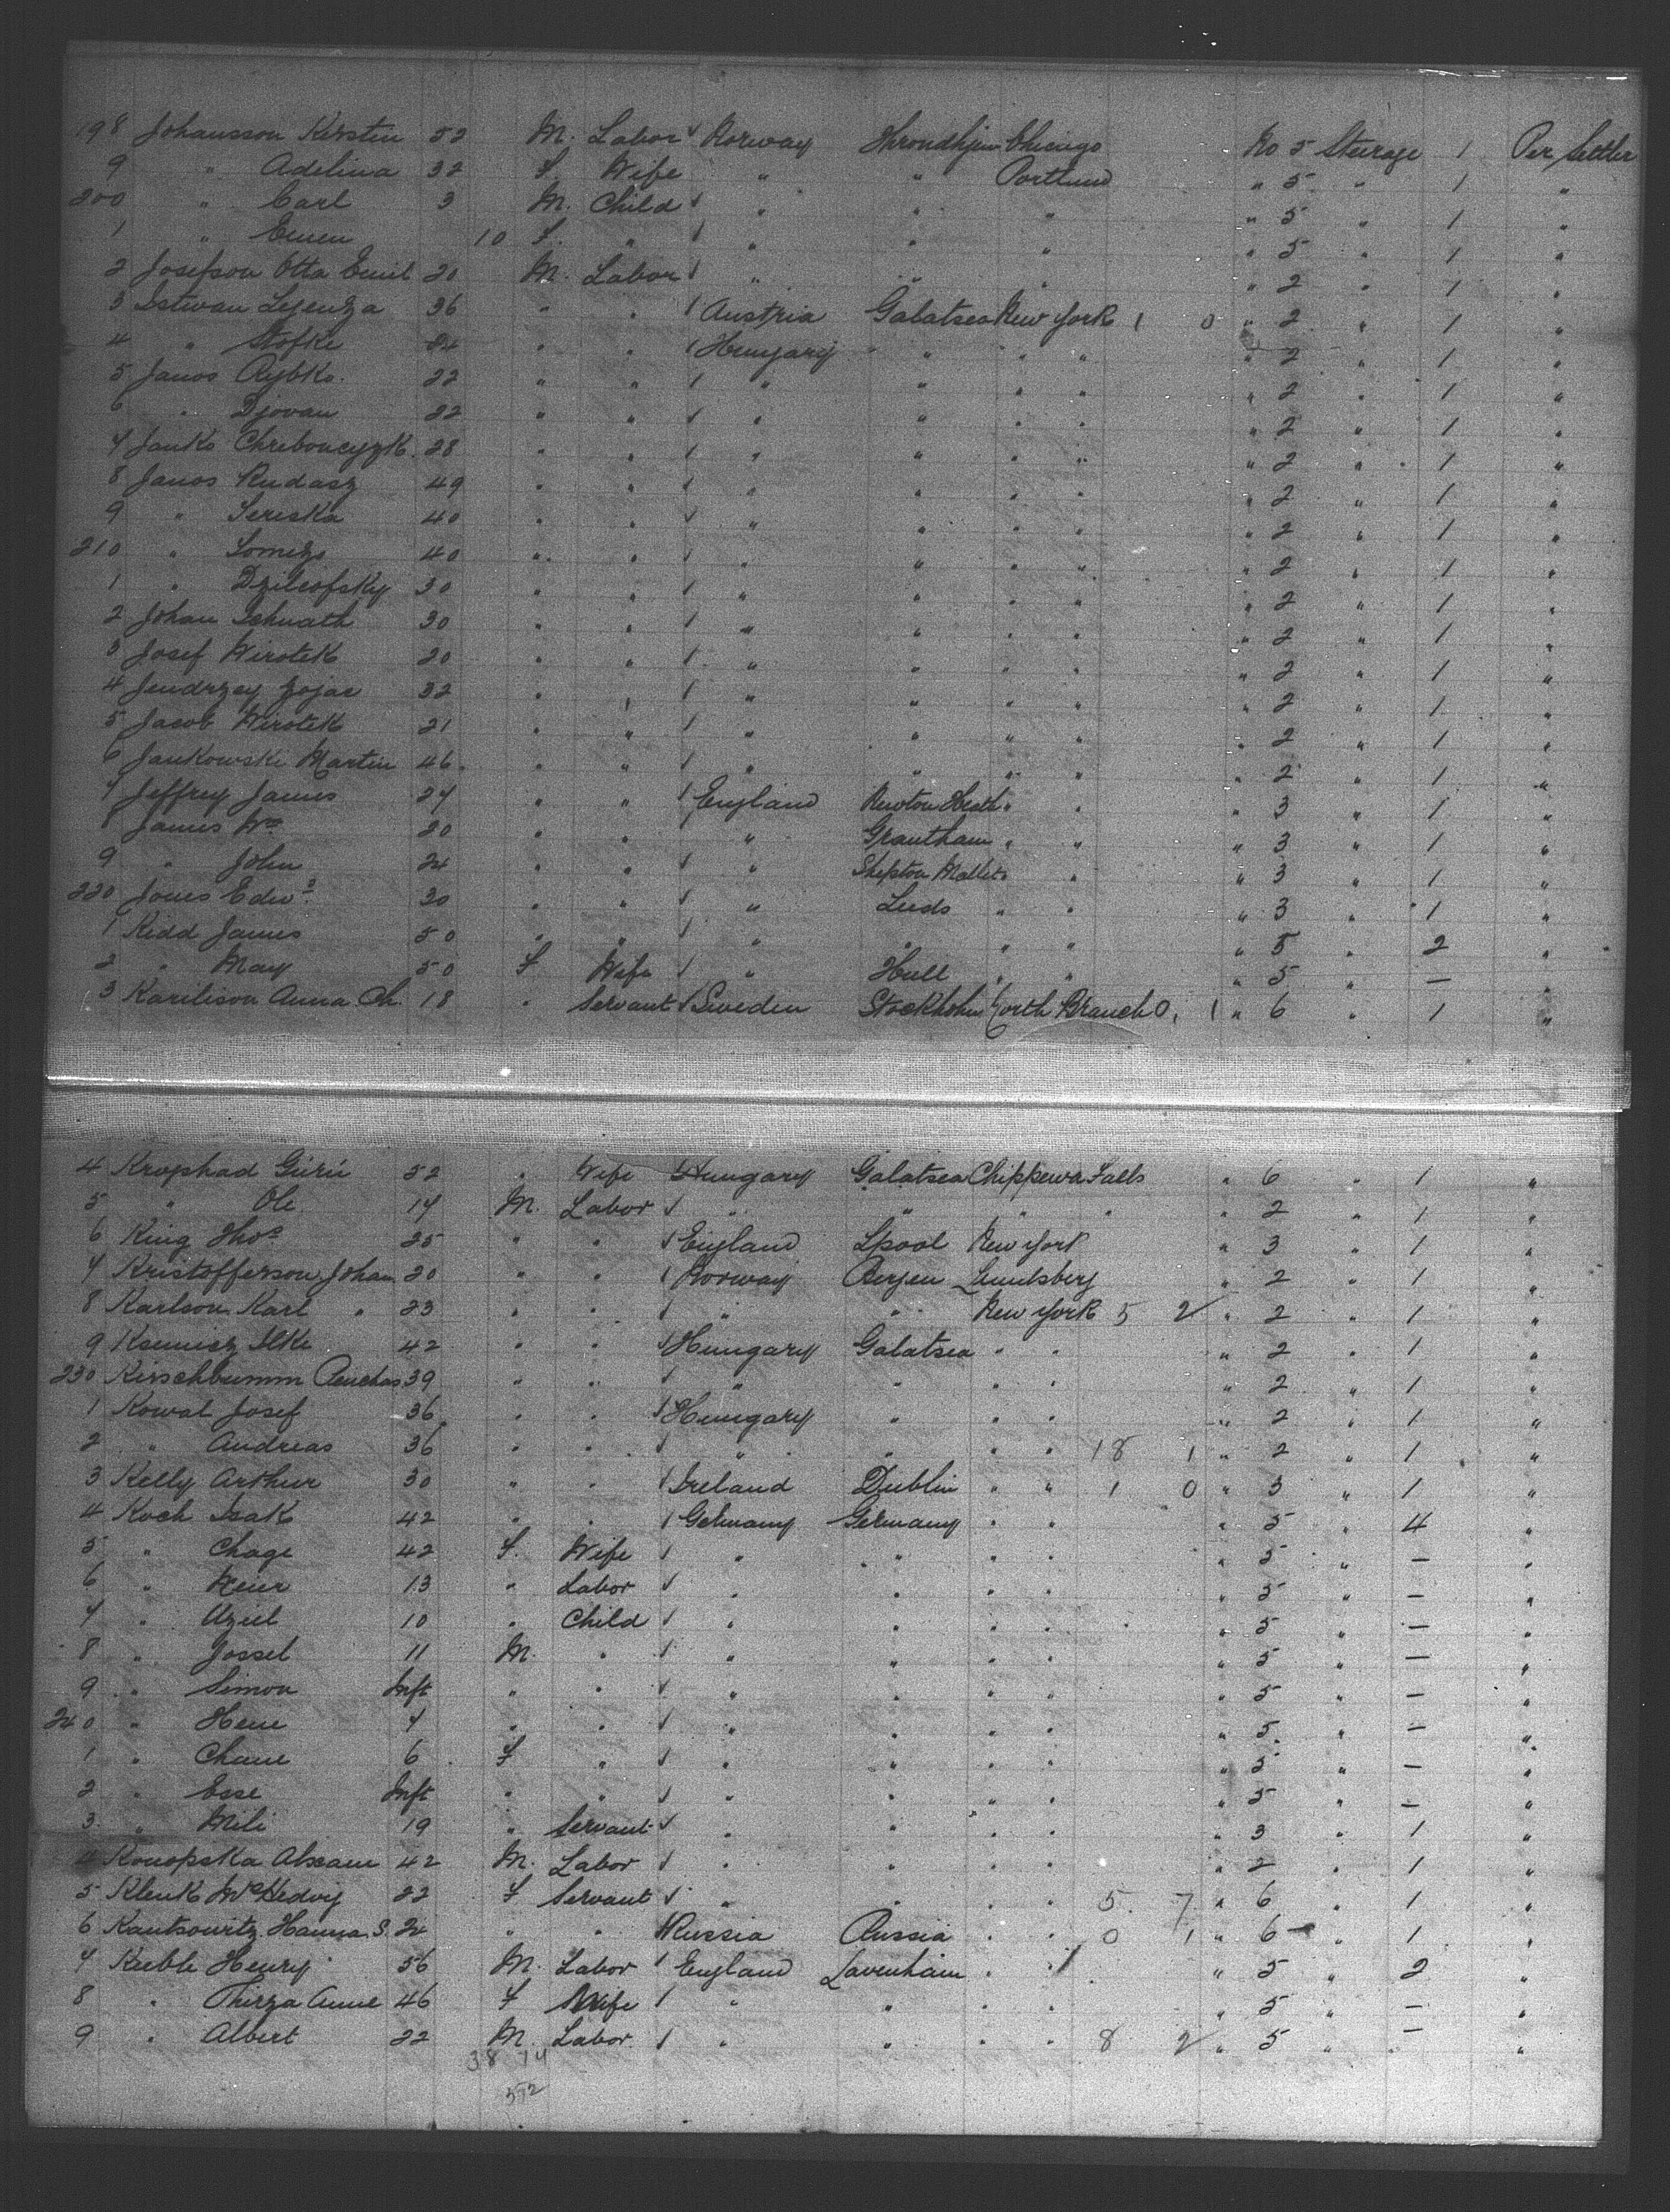 198 Johansson Kirstin 52 M. Labor Norway Throndhjem Chicago No 5 Steerage 1 Per Settler
9 " Adelina 32 F. Wife " " Portland " 5 " 1 "
200 " Carl 3 M. Child " " " " 5 " 1 "
1 " 10 F. " " " " " 5 " 1 "
2 Josefson Otto Emil 20 M. Labor " " " " 2 " 1 "
3 Istwan 36 " " Austria Galatsea New York 1 0 " 2 " 1 "
4 " Stofke 24 " " Hungary " " " " 2 " 1 "
5 Janos Rybko. 22 " " " " " " " 2 " 1 "
6 " Djovan 22 " " " " " " " 2 " 1 "
7 Janko 28 " " " " " " " 2 " 1 "
8 Janos Rudasz 49 " " " " " " " 2 " 1 "
9 " Seriska 40 " " " " " " " 2 " 1 "
210 " 40 " " " " " " " 2 " 1 "
1 " Dzileofsky 30 " " " " " " " 2 " 1 "
2 Johan Schnath 30 " " " " " " " 2 " 1 "
3 Josef Wirotek 20 " " " " " " " 2 " 1 "
4 Jendrzey Zojac 32 " " " " " " " 2 " 1 "
5 Jacob Wirotek 21 " " " " " " " 2 " 1 "
6 Jankowski Martin 46 " " " " " " " 2 " 1 "
7 Jeffrey James 27 " " England Newton Heath " " " 3 " 1 "
8 James Wm 20 " " " Grantham " " " 3 " 1 "
9 " John 24 " " " Shepton Mallet " " " 3 " 1 "
220 Jones Edwd 30 " " " Leeds " " " 3 " 1 "
1 Kidd James 50 " " " " " " " 5 " 2 "
2 " May 50 F Wife " Hull " " " 5 " — "
3 Karilison Anna Ch. 18 " Servant Sweden Stockholm North Branch 0, 1 " 6 " 1 "
4 Krophad Gúrú 52 " Wife Hungary Galatsea Chippewa Falls " 6 " 1 "
5 " Ole 17 M. Labor " " " " " 2 " 1 "
6 King Thos 25 " " England Lpool New York " 3 " 1 "
7 Kristofferson Johan 20 " " Norway Bergen " 2 " 1 "
8 Karlson Karl " 23 " " " " New York 5 2 " 2 " 1 "
9 Ksenisz Ilke 42 " " Hungary Galatsea " " " 2 " 1 "
230 Kirschbumm 39 " " " " " " " 2 " 1 "
1 Kowal Josef 36 " " Hungary " " " " 2 " 1 "
2 " Andreas 36 " " " " " " 18 1 " 2 " 1 "
3 Kelly Arthur 30 " " Ireland Dublin " " 1 0 " 3 " 1 "
4 Koch Isak 42 " " Germany Germany " " " 5 " 4 "
5 " Chage 42 F. Wife " " " " " 5 " — "
6 " 13 " Labor " " " " " 5 " — "
7 " Aziel 10 " Child " " " " " 5 " — "
8 " Jossel 11 M. " " " " " " 5 " — "
9 " Simon Inft " " " " " " " 5 " — "
240 " Hene 7 " " " " " " " 5 " — "
1 " Chane 6 F " " " " " " 5 " — "
2 " Esse Inft " " " " " " " 5 " — "
3 " Mili 19 " Servant " " " " " 3 " 1 "
4 Konopska Abram 42 M. Labor " " " " " 2 " 1 "
5 Klenk 22 F Servant " " " " 5 7 " 6 " 1 "
6 Kantsowitz Hanna S. 24 " " Russia Russia " " 0 1 " 6 " 1 "
7 Keeble Henry 56 M. Labor England Lavenham " " " 5 " 2 "
8 " Thirza Anne 46 F Wife " " " " " 5 " — "
9 " Albert 22 M. Labor " " " " 8 2 " 5 " — "
38 14
52